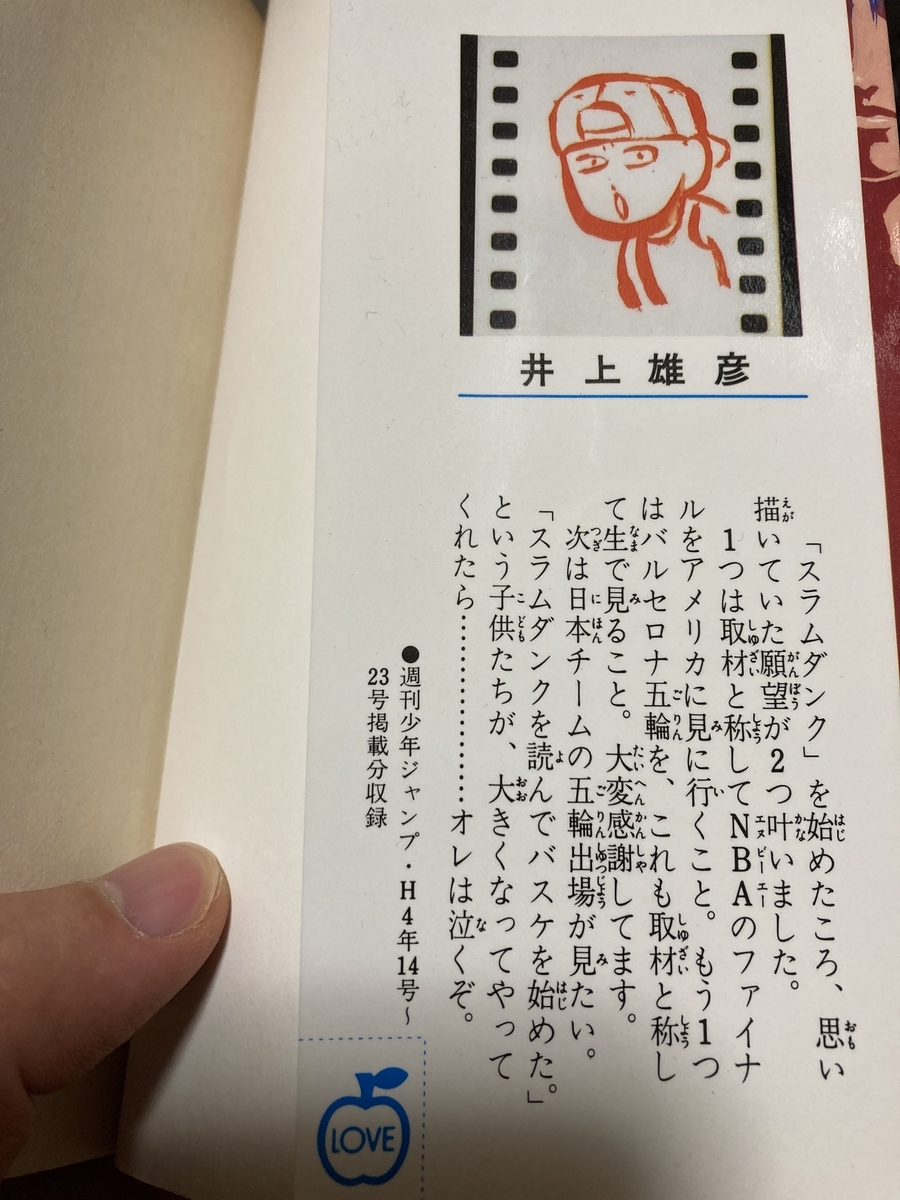 井上雄彦
「スラムダンク」を始めたころ、思い
描いていた願望が2つ叶いました。
1つは取材と称してNBAのファイナ
ルをアメリカに見に行くこと。もう1つ
はバルセロナ五輪を、これも取材と称し
て生で見ること。大変感謝してます。
次は日本チームの五輪出場が見たい。
「スラムダンクを読んでバスケを始めた。」
という子供たちが、大きくなってやって
くれたら………………オレは泣くぞ。
●週刊少年ジャンプ・H4年14号~
23号掲載分収録
LOVE